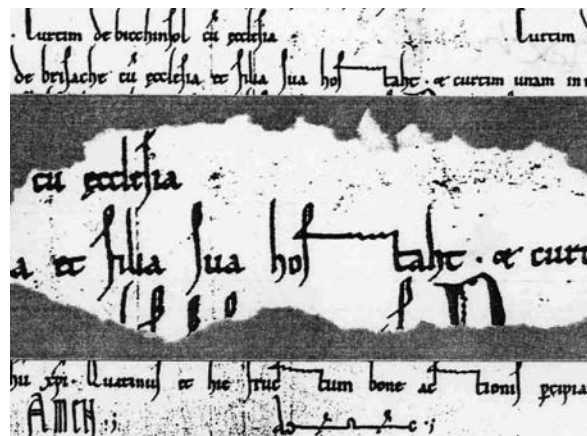 Curtim de bicchinsol cū ęcclesia Curtim
de brisache cū ęcclesia et filia sua hostaht · et curtim unam in
cū ęcclesia
a et filia sua hostaht · et curt
hu xp̄i · Quatinus et hic fructum bone actionis p̄cipia
AMEN :;